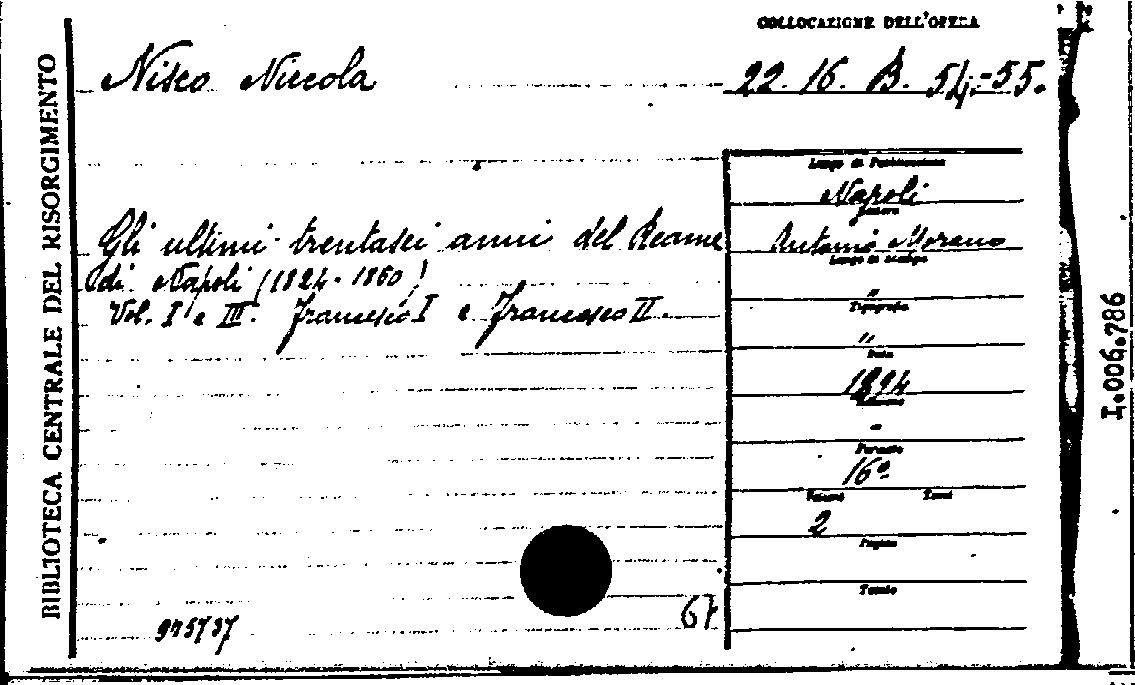 COLLOCAZIONE DELL'OPERA
Nisco Niccola
22. 16. B. 54-55.
BIBLIOTECA CENTRALE DEL RISORGIMENTO
Gli ultimi trentasei anni del Reame
di Napoli (1824-1860)
Vol. I e III. Francesco I e Francesco II.
Luogo di Pubblicazione
Napoli
Editore
Antonio Morano
Luogo di stampa
"
Tipografia
"
Data
1894
Edizione
-
Formato
16º
Volumi Tomi
2
Pagine
Tavole
67
I.006.786